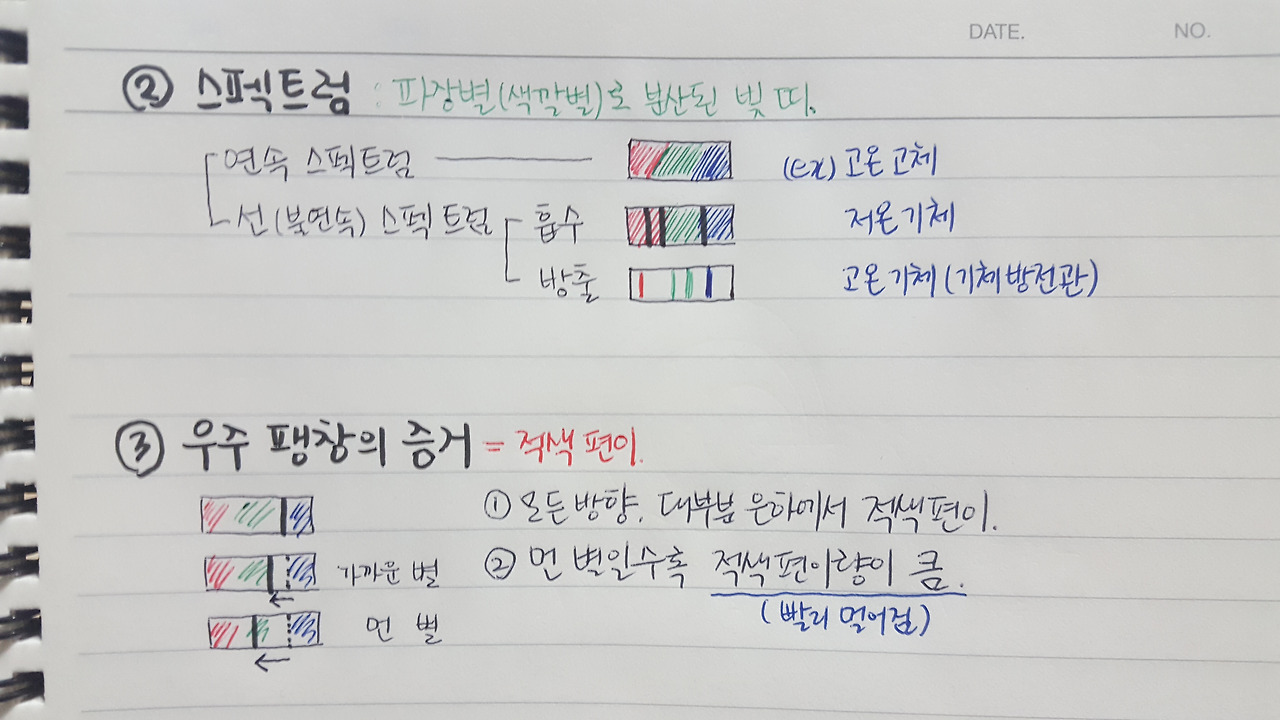 DATE. NO.
② 스펙트럼 : 파장별(색깔별)로 분산된 빛 띠.
연속 스펙트럼 (ex) 고온 고체
선(불연속) 스펙트럼 흡수 저온 기체
방출 고온 기체 (기체 방전관)
③ 우주 팽창의 증거 = 적색 편이.
① 모든 방향, 대부분 은하에서 적색편이.
가까운 별 ② 먼 별일수록 적색편이량이 큼.
먼 별 (빨리 멀어짐)